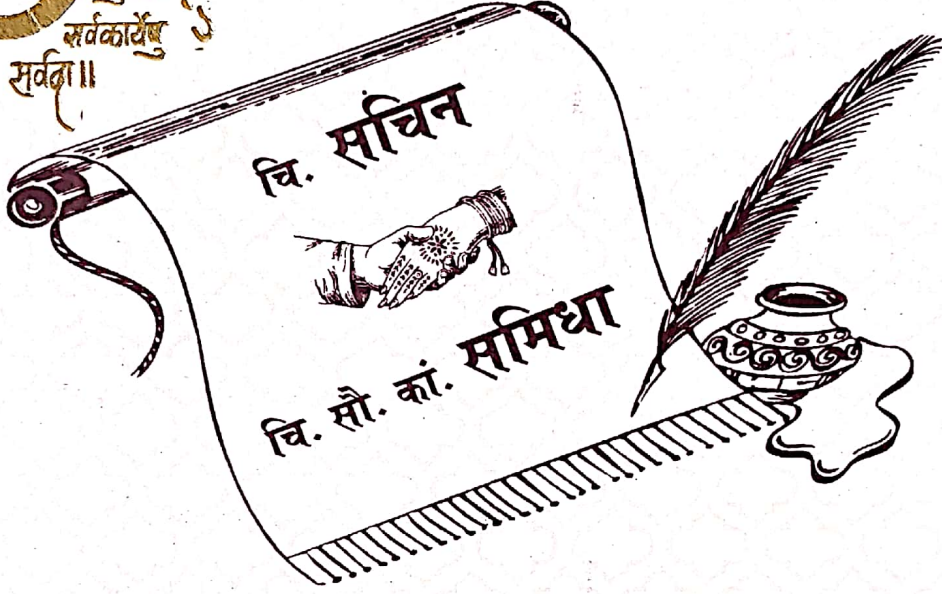 सर्वकार्येषु
सर्वदा॥
चि. सचिन
चि. सौ. कां. समिधा